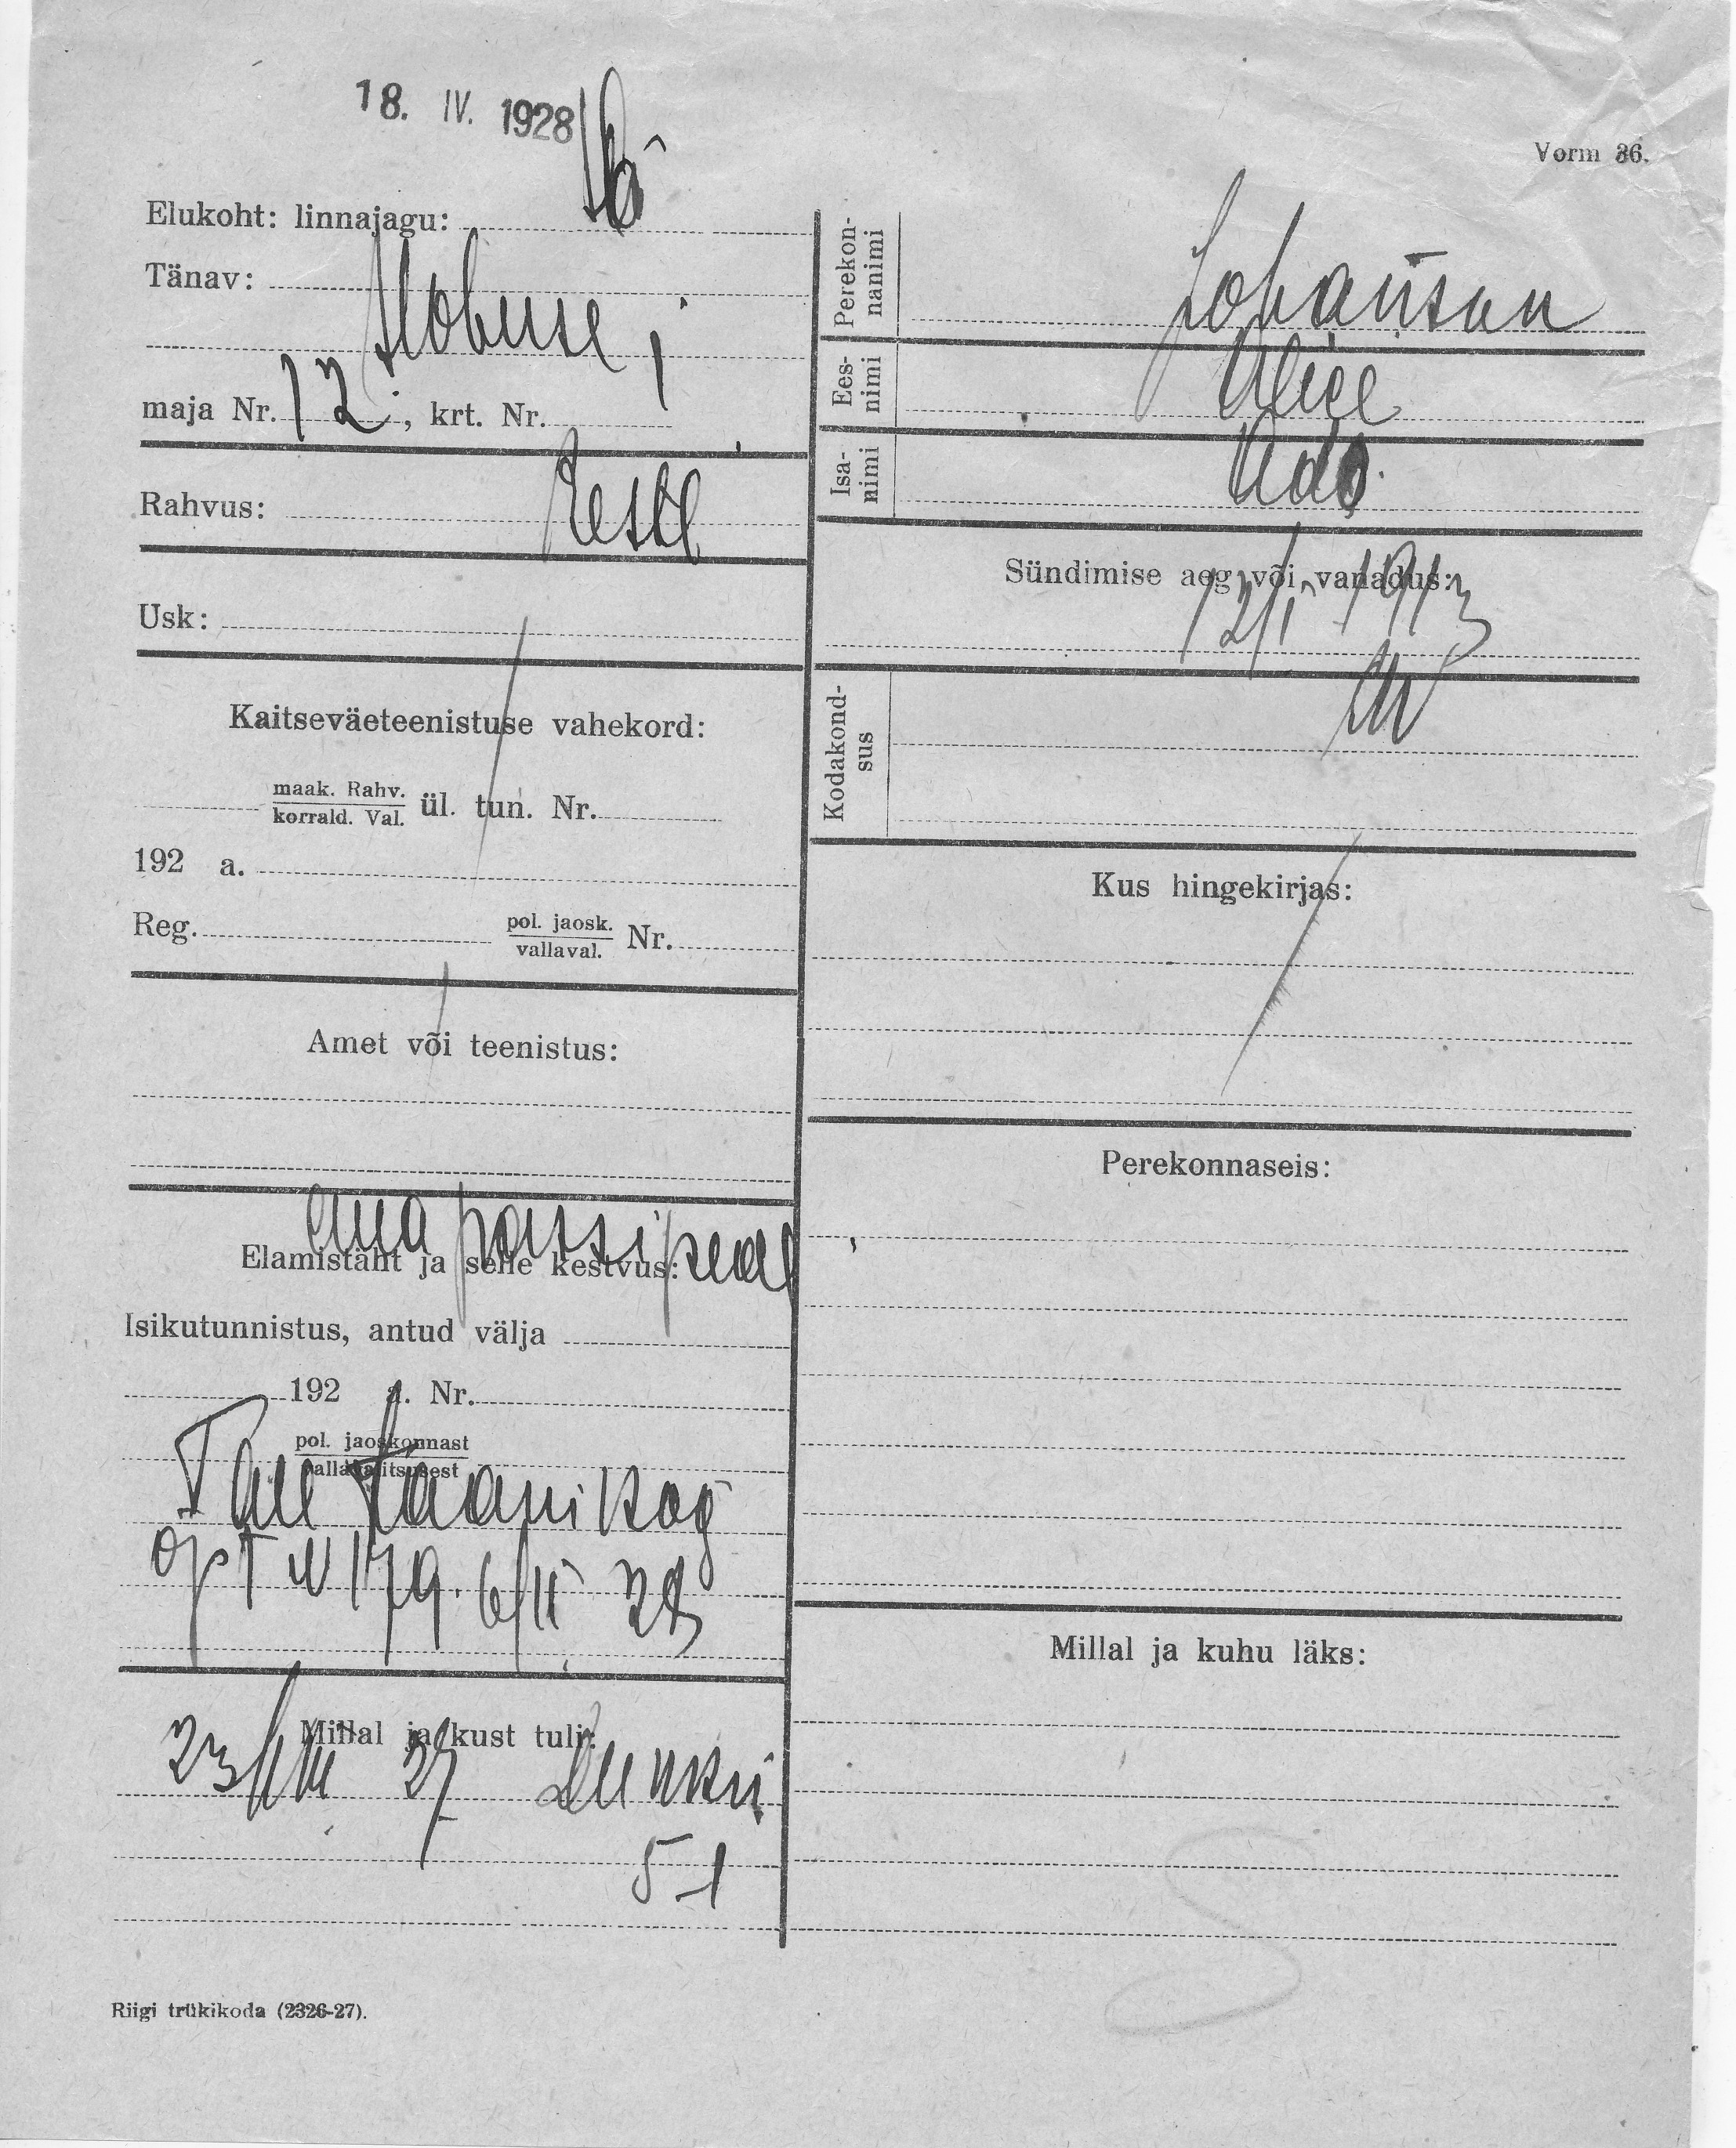 18. IV. 1928
Vorm 36.
Elukoht: linnajagu:
Tänav:
Hobuse
maja Nr. 12, krt. Nr.
Rahvus: Eesti
Usk:
Kaitseväeteenistuse vahekord:
maak. Rahv.
korrald. Val. ül. tun. Nr.
192 a.
Reg. pol. jaosk.
vallaval. Nr.
Amet või teenistus:
ema passi peal
Elamistäht ja selle kestvus:
Isikutunnistus, antud välja
192 a. Nr.
pol. jaoskonnast
vallavalitsusest
Tall Jaani kog
opt N 179. 6/II 28
Millal ja kust tuli:
23/VIII 27
5-1
Riigi trükikoda (2326-27).
Perekon-
nanimi
Johanson
Ees-
nimi
Alice
Isa-
nimi
Udo
Sündimise aeg või vanadus:
1913
Kodakond-
sus
Kus hingekirjas:
Perekonnaseis:
Millal ja kuhu läks: